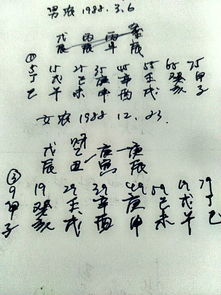 男农 1988.3.6
戊 丙 丙
辰 辰 午 辰
① 5 15 25 35 45 55 65 75
丁 戊 己 庚 辛 壬 癸 甲
巳 午 未 申 酉 戌 亥 子
女农 1988 12.23
戊 乙 庚 庚
辰 丑 寅 辰
9 19 29 39 49 59 69 79
甲 癸 壬 辛 庚 己 戊 丁
子 亥 戌 酉 申 未 午 巳